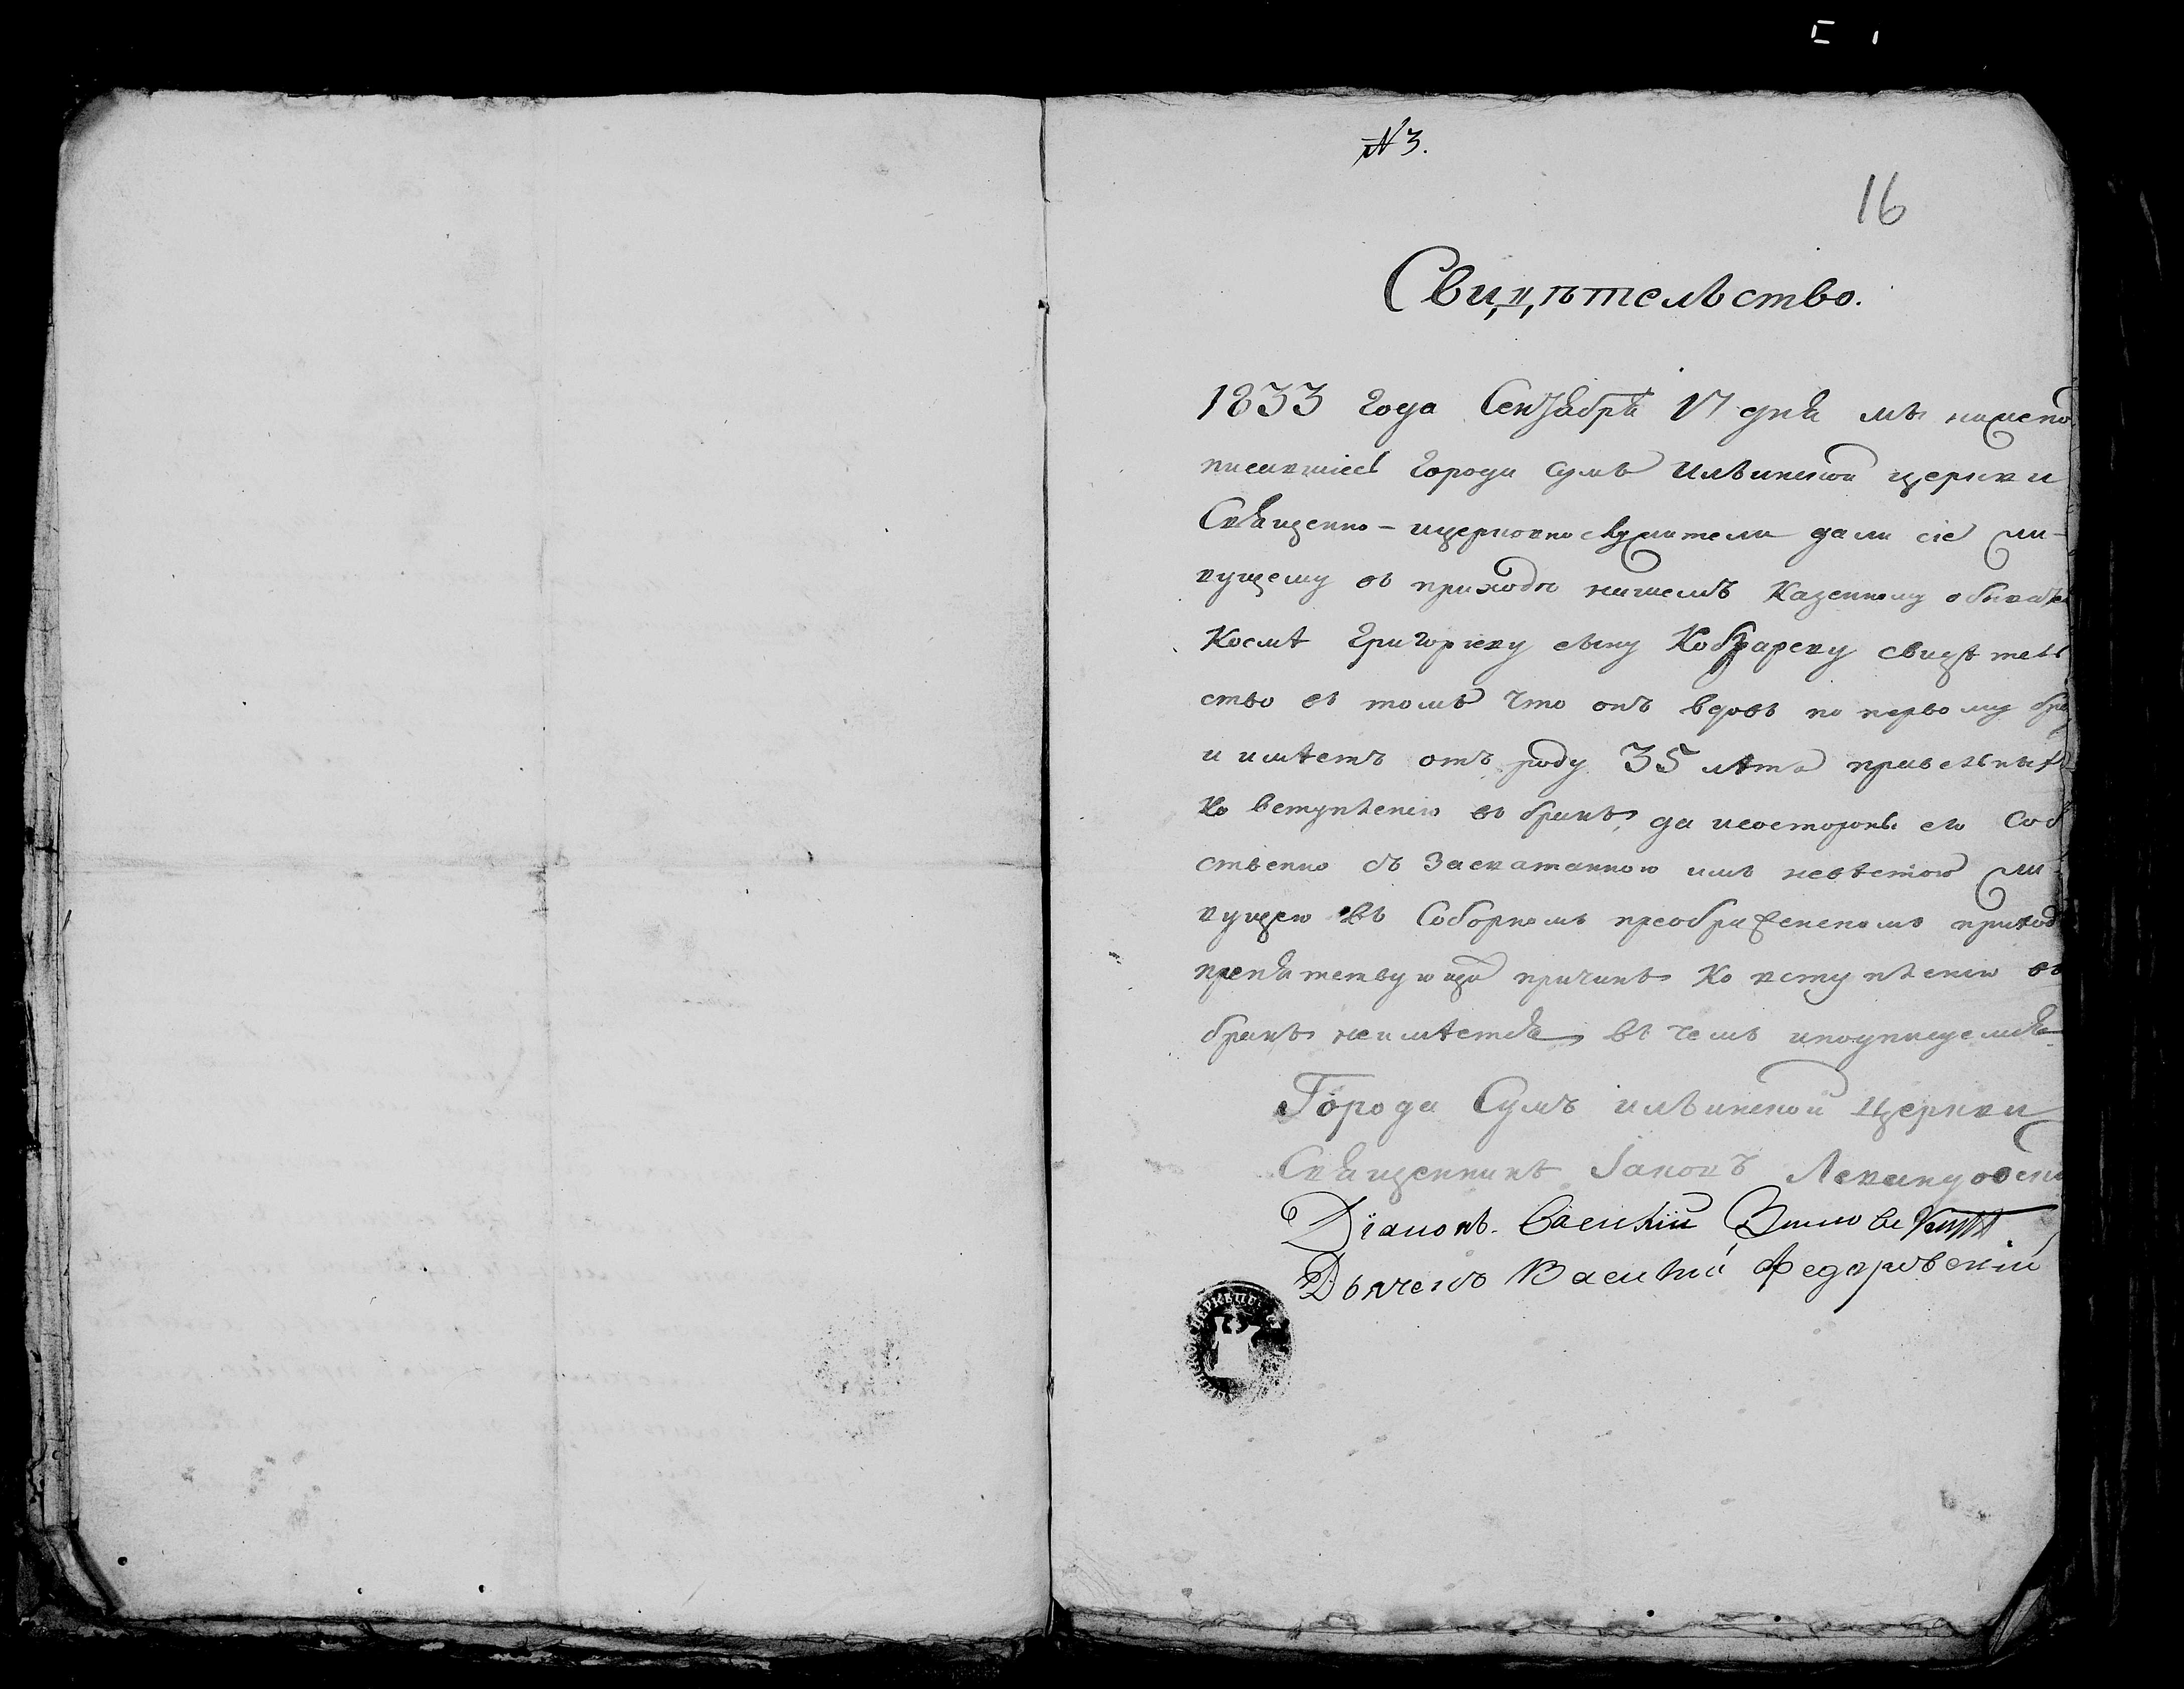 № 3.
16
Свидѣтельство.
1833 года Сентября 17 дня мы нижепо
писавшіесь города Сумъ Ильинской церкви
Священно-ицерковнослужители дали сіе жи-
вущему въ приходѣ нашемъ Казенному обывате
Космѣ Григорieву сыну свидѣтель
ство въ томъ что онъ вдовъ по первому бра
и имѣетъ отъ роду 35 лѣтъ
ко вступленію въ бракъ, да исостороны его Соб
ственно съ Засватанною имъ невѣстою жи
вущею въ Соборномъ преображенскомъ приход
препятствующа причинъ Ко вступленію въ
бракъ неимѣется въ чемъ иподписуемся
Города Сумъ ильинской Церкви
Священникъ Іаковъ
Діаконъ Василій
Дьячекъ Василій Федоровскій